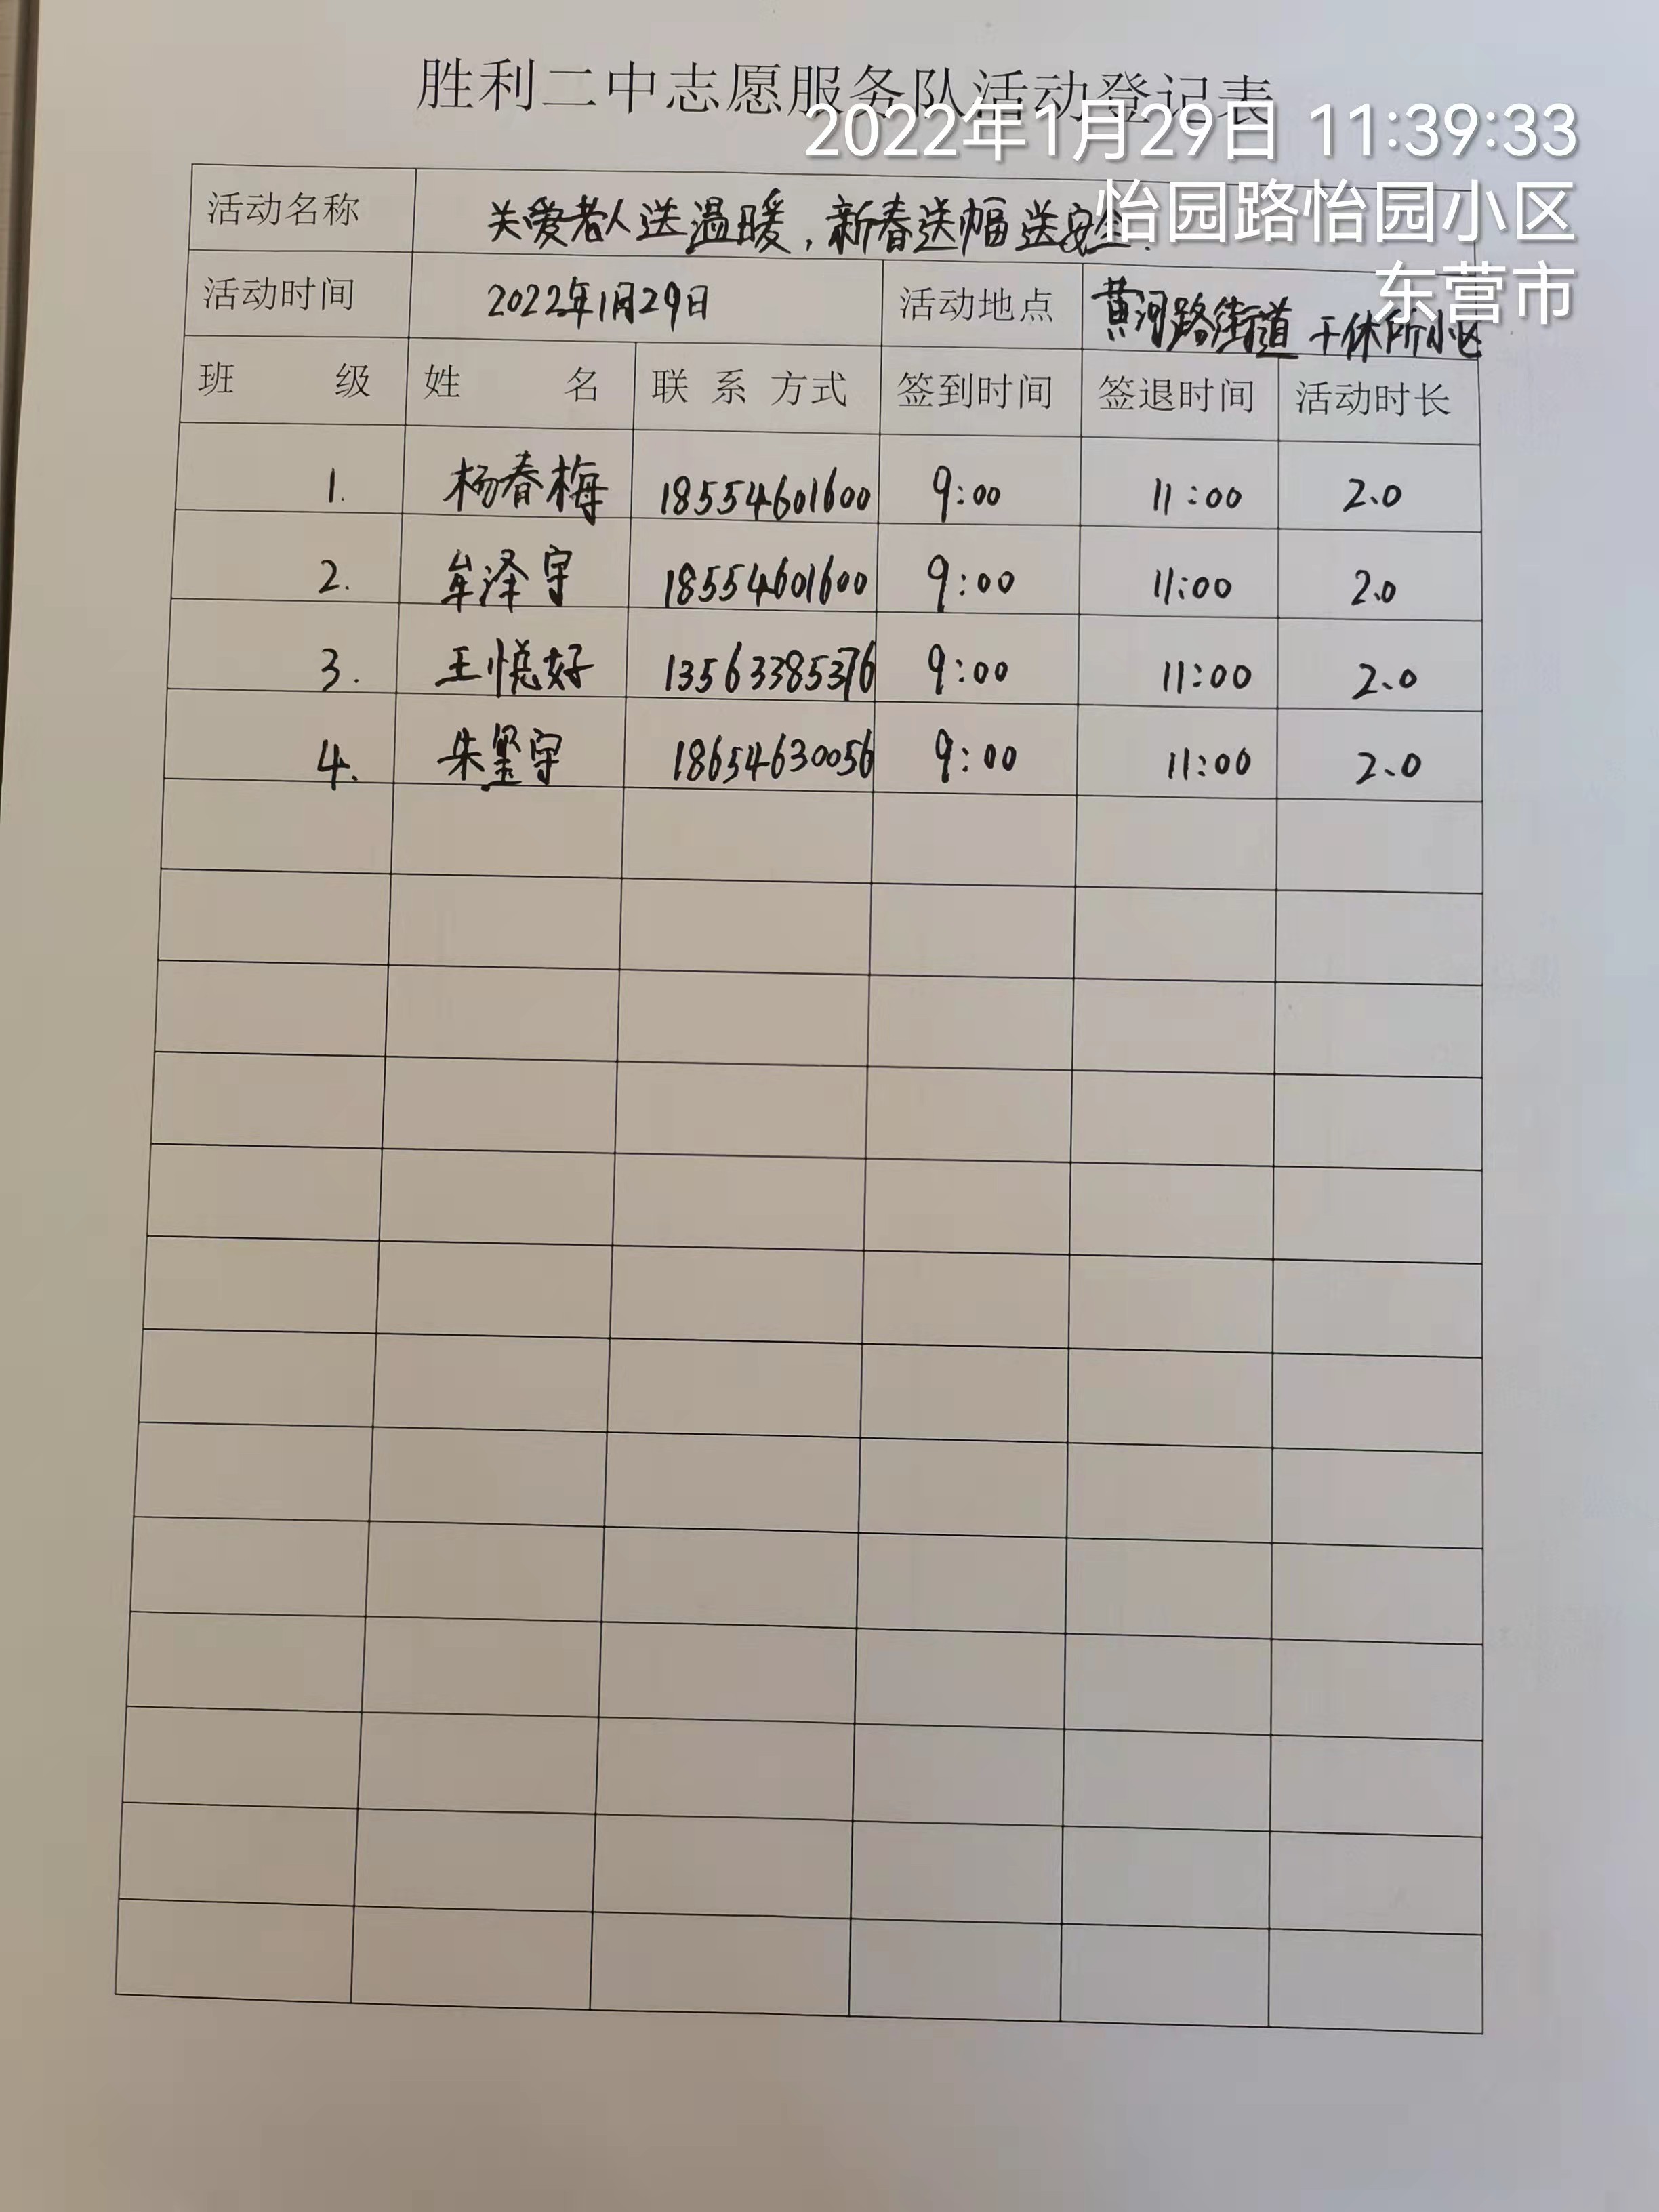 胜利二中志愿服务队活动登记表
2022年1月29日 11:39:33
怡园路怡园小区
东营市
活动名称 关爱老人送温暖,新春送幅送安全.
活动时间 2022年1月29日 活动地点 黄河路街道干休所小区
班 级 姓 名 联系方式 签到时间 签退时间 活动时长
1. 杨春梅 18554601600 9:00 11:00 2.0
2. 牟泽宇 18554601600 9:00 11:00 2.0
3. 王悦好 13563385376 9:00 11:00 2.0
4. 朱坚宇 18654630056 9:00 11:00 2.0